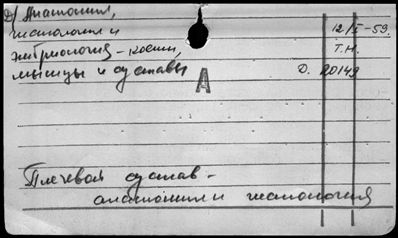 Д/ Анатомия,
гистология и
эмбриология - кости,
мышцы и суставы
12/I - 59.
Т.Н.
А
О. 20149
Плечевой сустав -
анатомия и гистология